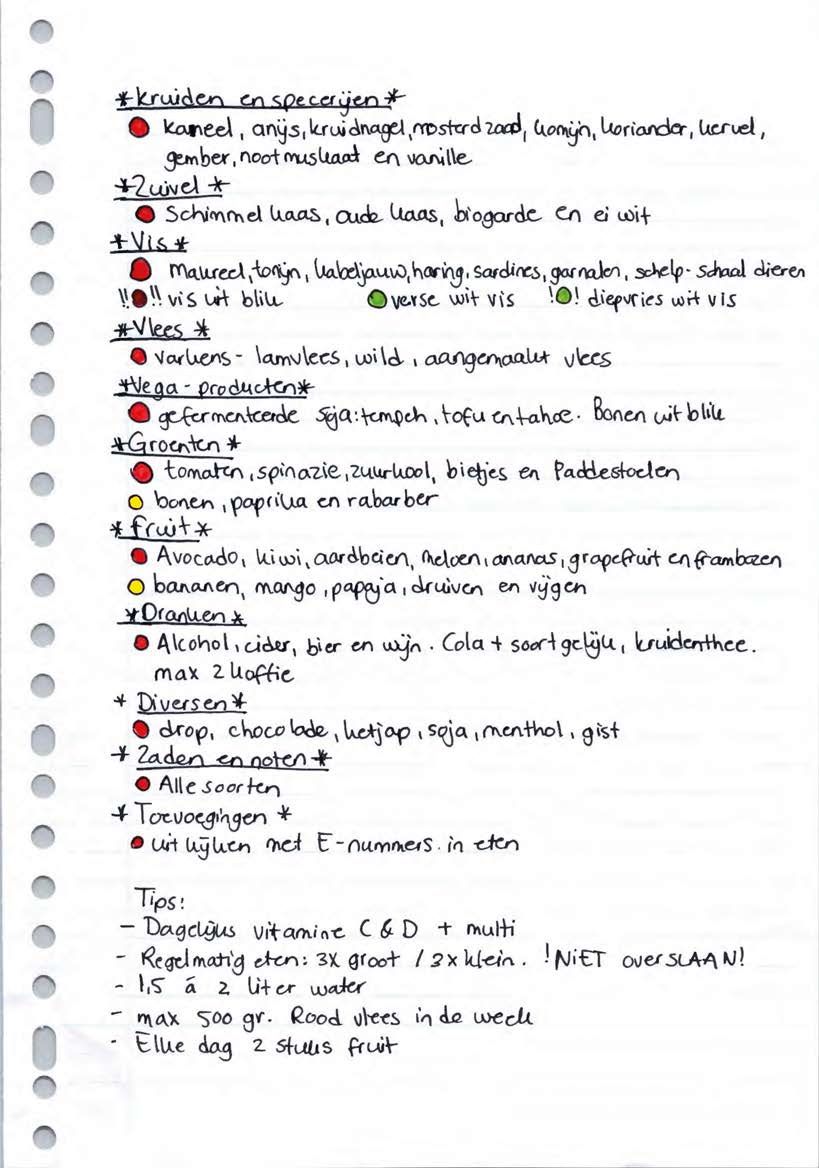 *kruiden en specerijen*
kaneel, anijs, kruidnagel, mosterd zaad, komijn, koriander, kervel,
gember, nootmuskaat en vanille
*Zuivel*
Schimmel kaas, oude kaas, biogarde en ei wit
*Vis*
makreel, tonijn, kabeljauw, haring, sardines, garnalen, schelp-schaal dieren
!! !! vis uit blik verse wit vis ! ! diepvries wit vis
*Vlees*
varkens- lamvlees, wild, aangemaakt vlees
*Vega-producten*
gefermenteerde soja: tempeh, tofu en tahoe. Bonen uit blik
*Groenten*
tomaten, spinazie, zuurkool, bietjes en Paddestoelen
bonen, paprika en rabarber
*fruit*
Avocado, kiwi, aardbeien, meloen, ananas, grapefruit en frambozen
bananen, mango, papaja, druiven en vijgen
*Dranken*
Alcohol, cider, bier en wijn. Cola + soortgelijk, kruidenthee.
max 2 koffie
* Diversen*
drop, chocolade, ketjap, soja, menthol, gist
* Zaden en noten*
Alle soorten
* Toevoegingen *
uit kijken met E-nummers. in eten
Tips:
- Dagelijks vitamine C & D + multi
- Regelmatig eten: 3x groot / 3x klein. !NiET overSLAAN!
- 1,5 á 2 liter water
- max 500 gr. Rood vlees in de week
- Elke dag 2 stuks fruit